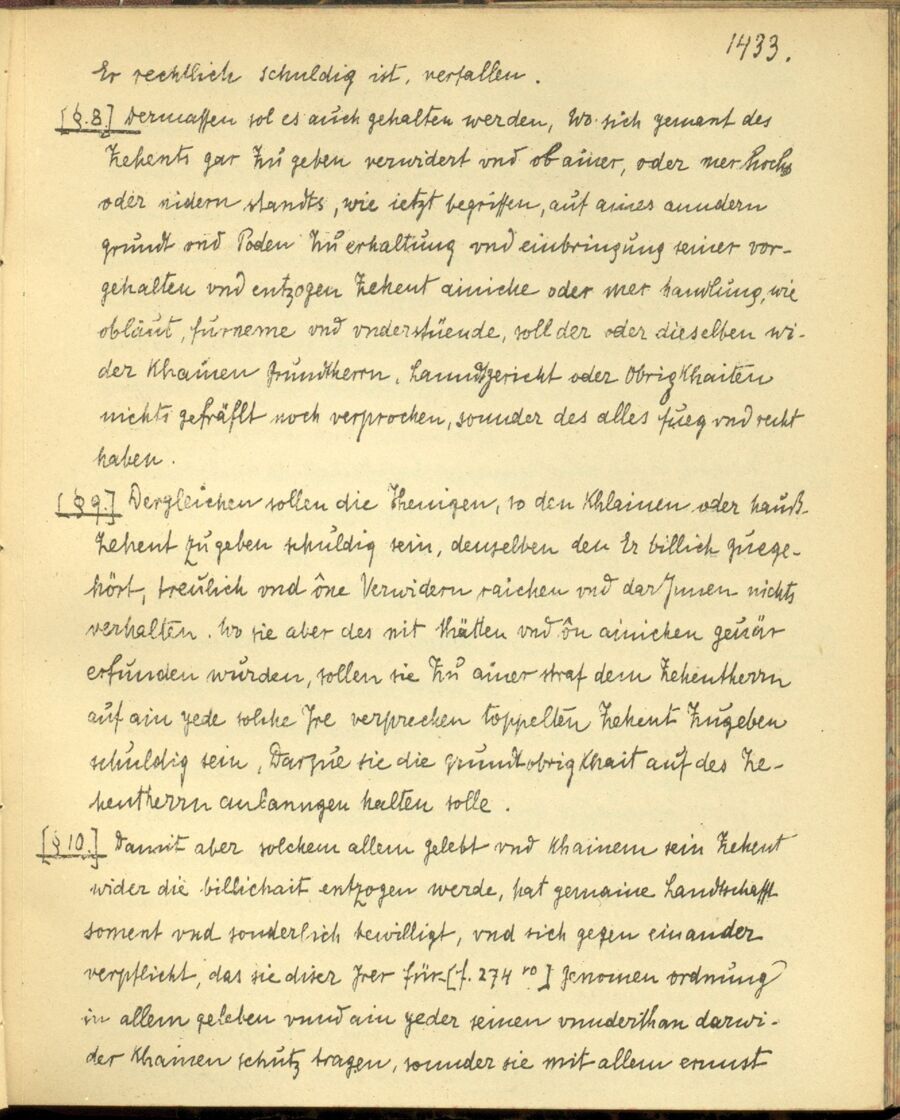 1433.
Er rechtlich schuldig ist, verfallen.
[§.8.] Dermassen sol es auch gehalten werden, Wo sich yemant des
Zehents gar Zu geben verwidert vnd ob ainer, oder mer hochs
oder nidern standts, wie ietzt begriffen, auf aines anndern
grundt vnd Poden Zu erhaltung vnd einbringung seiner vor-
gehalten vnd entzogen Zehent ainiche oder mer handlung, wie
obläut, fürneme vnd vnderstüende, soll der oder dieselben wi-
der Khainen Grundtherrn, Lanndtgericht oder ObrigKhaiten
nichts gefräflt noch verprochen, sonnder des alles fueg vnd recht
haben.
[§9.] Dergleichen sollen die Jhenigen, so den Khlainen oder hauß-
Zehent zu geben schuldig sein, denselben den Er billich zuege-
hört, treulich vnd ône Verwidern raichen vnd darJnnen nichts
verhalten. Wo sie aber des nit thätten vnd ôn ainichen geuär
erfunden wurden, sollen sie Zu ainer straf dem Zehentherrn
auf ain yede solche Jre verprechen toppelten Zehent Zugeben
schuldig sein, Darzue sie die grundtobrigKhait auf des Ze-
hentherrn anlanngen halten solle.
[§10.] Damit aber solchem allem gelebt vnd Khainem sein Zehent
wider die billichait entzogen werde, hat gemaine Landtschafft
soment vnd sonderlich bewilligt, vnd sich gegen einander
verpflicht, das sie diser Jrer für-[f. 274 ro] genomen ordnung
in allem geleben vnnd ain yeder seinen vnnderthan darwi-
der Khainen schutz tragen, sonnder sie mit allem ernnst